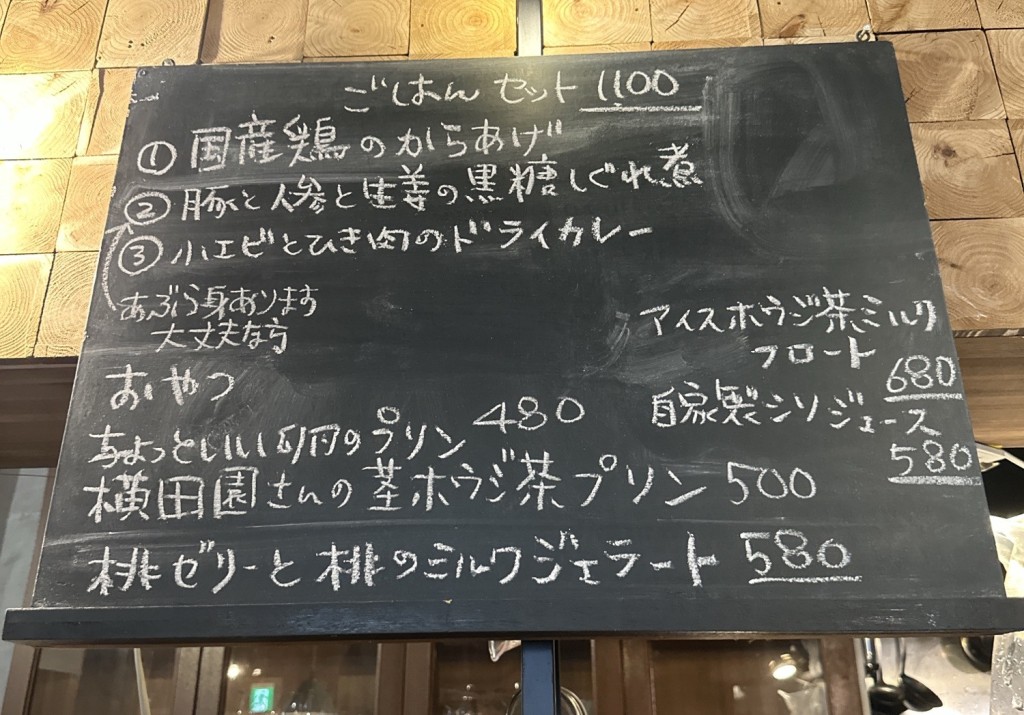 ごはんセット 1100
① 国産鶏のからあげ
② 豚と人参と生姜の黒糖しぐれ煮
③ 小エビとひき肉のドライカレー
あぶら身あります
大丈夫なら
おやつ
ちょっといい卵のプリン 480
横田園さんの茎ホウジ茶プリン 500
桃ゼリーと桃のミルクジェラート 580
アイスホウジ茶ミルク
フロート
680
自家製シソジュース
580